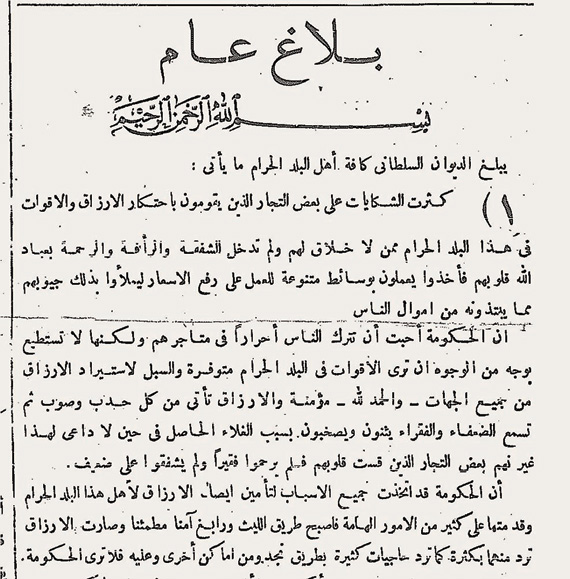 بلاغ عام
بسم الله الرحمن الرحيم
يبلغ الديوان السلطانى كافة أهل البلد الحرام ما يأتى :
١) كثرت الشكايات على بعض التجار الذين يقومون باحتكار الارزاق والاقوات
فى هذا البلد الحرام ممن لا خلاق لهم ولم تدخل الشفقة والرأفة والرحمة بعباد
الله قلوبهم فأخذوا يعملون بوسائط متنوعة للعمل على رفع الاسعار ليملأوا بذلك جيوبهم
مما يبتذونه من اموال الناس
ان الحكومة أحبت أن تترك الناس أحراراً فى متاجرهم ولكنها لا تستطيع
بوجه من الوجوه ان ترى الاقوات فى البلد الحرام متوفرة والسبل لاستيراد الارزاق
من جميع الجهات ــ والحمد لله ــ مؤمنة والارزاق تأتى من كل حدب وصوب ثم
تسمع الضعفاء والفقراء يئنون ويصخبون بسبب الغلاء الحاصل فى حين لا داعى لهذا
غير نهم بعض التجار الذين قست قلوبهم فلم يرحموا فقيراً ولم يشفقوا على ضعيف .
أن الحكومة قد اتخذت جميع الاسباب لتأمين ايصال الارزاق لأهل هذا البلد الحرام
وقدمتها على كثير من الامور الهامة فاصبح طريق الليث ورابغ آمنا مطمئنا وصارت الارزاق
ترد منهما بكثرة كما ترد حاجيات كثيرة بطريق نجد ومن اماكن أخرى وعليه فلا ترى الحكومة